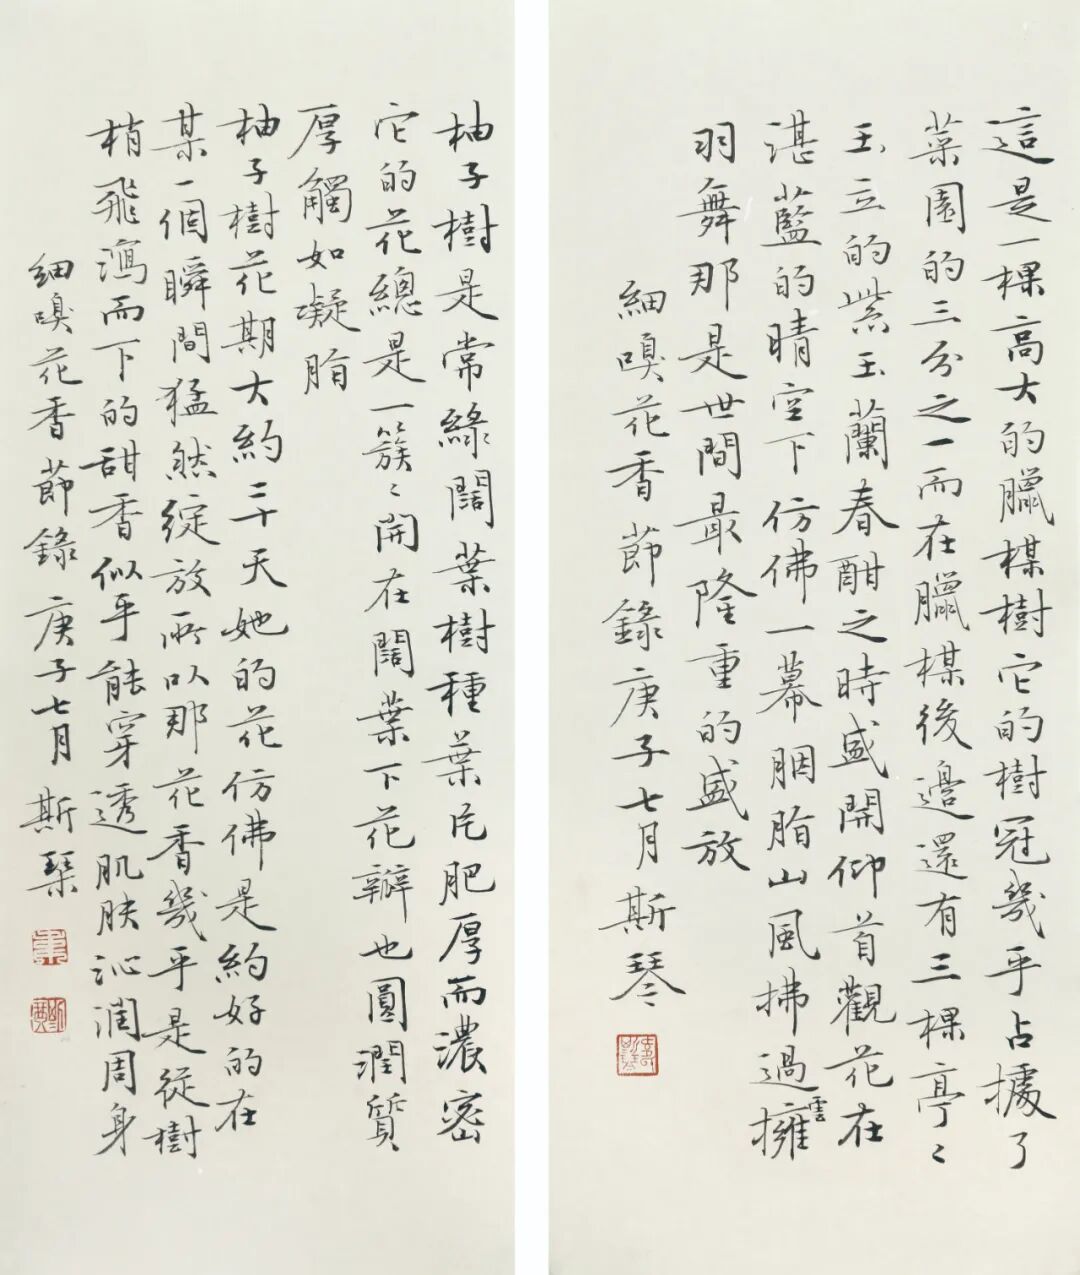 這是一棵高大的臘楳樹它的樹冠幾乎占據了
菜園的三分之一而在臘楳後邊還有三棵亭〻
玉立的紫玉蘭春酣之時盛開仰首觀花在
湛藍的晴空下仿佛一幕胭脂山風拂過雲擁
羽舞那是世間最隆重的盛放
細嗅花香節錄庚子七月斯琴
柚子樹是常綠闊葉樹種葉片肥厚而濃密
它的花總是一簇〻開在闊葉下花瓣也圓潤質
厚觸如凝脂
柚子樹花期大約三十天她的花仿佛是約好的在
某一個瞬間猛然綻放所以那花香幾乎是從樹
梢飛瀉而下的甜香似乎能穿透肌肤沁潤周身
細嗅花香節錄庚子七月斯琴